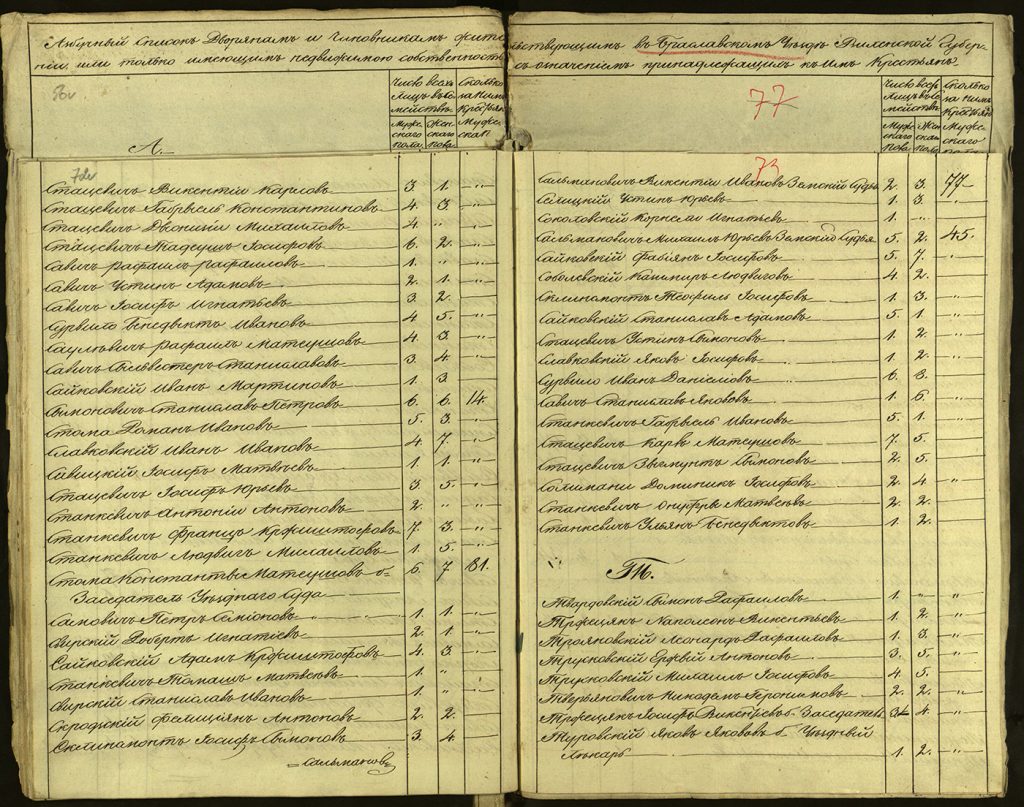 Азбучный Список Дворянамъ и Чиновникамъ жительствующимъ въ Браславскомъ Уѣздѣ Виленской Губер-
нiи, или только имеющимъ недвижимою собственность съ означенiемъ принадлежащихъ къ имъ Крестьянъ
72
Число всехъ лицъ въ семействѣ
Сколько за ними Крестьянъ
Мужескаго пола
Женскаго пола
Мужескаго
А.
Стацевичъ Викентiй Карловъ 3. 1. „
Стацевичъ Габрыель Константиновъ 4. 3. „
Стацевичъ Двонизiй Михаиловъ 4. „ „
Стацевичъ Тадеушъ Iосифовъ 6. 2. „
Савичъ Рафаилъ Рафаиловъ 1. „ „
Савичъ Устинъ Адамовъ 2. 1. „
Савичъ Iосифъ Игнатьевъ 3. 2. „
Сурвило Бенедыктъ Ивановъ 4. 5. „
Рафаилъ Матеушовъ 4. 3. „
Савичъ Сыльвестеръ Станиславовъ 3. 4. „
Сайковскiй Иванъ Мартиновъ 1. 3. „
Сымоновичъ Станиславъ Петровъ 6. 6. 14.
Стома Романъ Ивановъ 5. 3. „
Славковскiй Иванъ Ивановъ 4. 7. „
Савицкiй Iосифъ Матвѣевъ 1. 1. „
Стацевичъ Iосифъ Юрьевъ 3. 5. „
Станкевичъ Антонiй Антоновъ 2. „ „
Станкевичъ Францъ Кржиштофовъ 7. 3. „
Станкевичъ Людвигъ Михаиловъ 1. 5. „
Стома Константы Матеушовъ б. 6. 7. 181.
Заседатель Уѣзднаго Суда
Петръ Семiоновъ 1. 1. „
Свирскiй Робертъ Игнатiевъ 2. 1. „
Сайковскiй Адамъ Кржиштофовъ 4. 3. „
Станкевичъ Томашъ Матвѣевъ 1. „ „
Свирскiй Станиславъ Ивановъ 1. „ „
Фелицiянъ Антоновъ 2. 2. „
Iосифъ Сымоновъ 3. 4. „
77
Число всехъ лицъ въ семействѣ
Сколько за ними Крестьянъ
Мужескаго пола
Женскаго пола
Мужескаго
73
Сальмановичъ Викентiй Ивановъ Земскiй Судья 2. 3. 77
Селицкiй Устинъ Юрьевъ 1. 3. „
Соколовскiй Корнели Игнатьевъ 1. „ „
Сальмановичъ Михаилъ Юрьевъ Земскiй Судья 5. 2. 45.
Сайковскiй Фабiянъ Iосифовъ 5. 7. „
Соболевскiй Казимиръ Людвиговъ 4. 2. „
Теофиль Iосифовъ 1. 3. „
Сайковскiй Станиславъ Адамовъ 5. 1. „
Стацевичъ Устинъ Сымоновъ 1. 2. „
Славковскiй Яковъ Iосифовъ 1. 2. „
Сурвило Иванъ Данiелiовъ 6. 3. „
Савичъ Станиславъ Якововъ 1. 6. „
Станкевичъ Габрыель Ивановъ 5. 1. „
Стацевичъ Карлъ Матеушовъ 7. 5. „
Стацевичъ Зыгмунтъ Сымоновъ 2. 5. „
Солимани Доминикъ Iосифовъ 2. 4. „
Станкевичъ Онуфры Матвѣевъ 2. 2. „
Станкевичъ Ульянъ Бенедыктовъ 1. 2. „
Т.
Твардовскiй Сымонъ Рафаиловъ 1. „ „
Тржецякъ Наполеонъ Викентьевъ 1. 2. „
Трояновскiй Леонардъ Рафаиловъ 1. 3. „
Трусковскiй Ержый Антоновъ 3. 5. „
Трусковскiй Михаилъ Iосифовъ 4. 5. „
Тверьяновичъ Никодемъ Геронимовъ 2. 2. „
Тржецякъ Iосифъ Викентьевъ б. Заседатель 3. 4. „
Туровскiй Яковъ Якововъ б. Уѣздный
Лѣкарь 1. 2. „